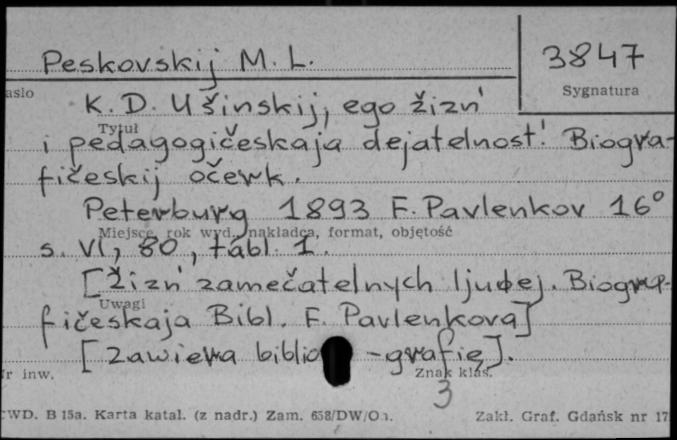 Peskovskij M. L.
3847
asło
Sygnatura
K. D. Ušinskij, ego žizń
Tytuł
i pedagogičeskaja dejatelnost'. Biogra-
fičeskij očerk.
Peterburg 1893 F. Pavlenkov 16°
Miejsce, rok wyd., nakładca, format, objętość
s. VI, 80, tabl. 1.
[Žizń zamečatelnych ljudej. Biogra-
Uwagi
fičeskaja Bibl. F. Pavlenkova]
[zawiera biblio-grafię].
r inw.
Znak klas.
3
WD. B 15a. Karta katal. (z nadr.) Zam. 658/DW/O
Zakł. Graf. Gdańsk nr 17